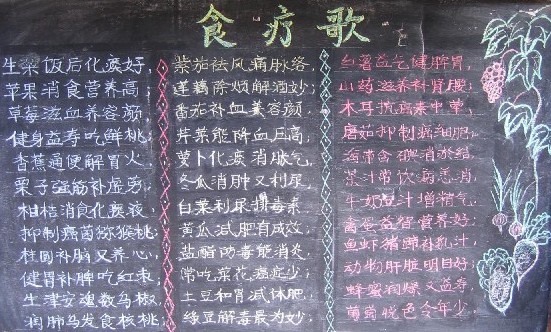 食疗歌
生梨饭后化痰好,
苹果消食营养高;
草莓滋血养容颜,
健身益寿吃鲜桃;
香蕉通便解胃火,
栗子强筋补虚劳;
柑桔消食化痰液,
抑制癌菌猕猴桃;
桂圆补脑又养心,
健胃补脾吃红枣,
生津安魂数乌梅,
润肺乌发食核桃,
紫茄祛风通脉络,
莲藕除烦解酒妙;
番茄补血美容颜,
芹菜能降血压高;
萝卜化痰消胀气,
冬瓜消肿又利尿,
白菜利尿排毒素,
黄瓜减肥有成效;
盐醋防毒能消炎,
常吃菜花癌症少;
土豆和胃减体肥,
绿豆解毒最为妙;
白薯益气健脾胃,
山药滋养补肾腰;
木耳抗癌素中荤,
蘑菇抑制癌细胞,
海带含碘消淤结,
茶汁常饮病患消,
牛奶豆汁增精气,
禽蛋益智营养好;
鱼虾猪蹄补乳汁,
动物肝脏明目好;
蜂蜜润燥又益寿
葡萄悦色令年少;